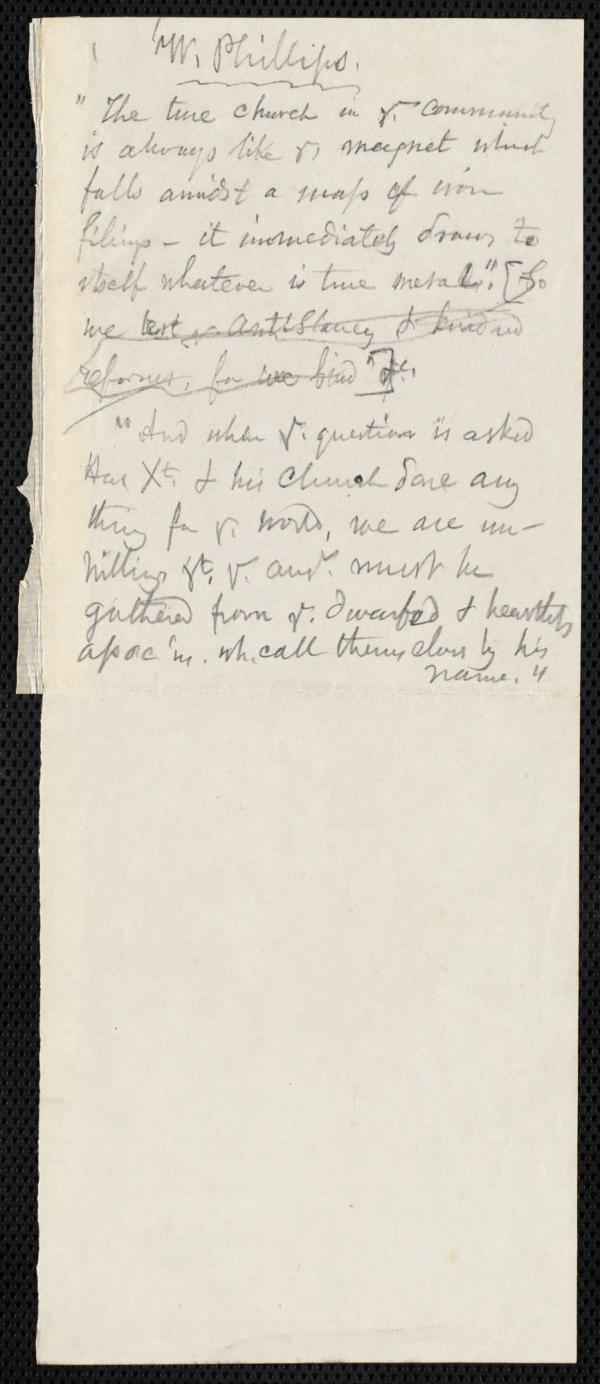 W. Phillips.
"The true church in y.e community
is always like y.e magnet which
falls amidst a mass of iron
filings – it immediately draws to
itself whatever is true metal." [So
we test y.e AntiSlavery & kindred
reforms, for we find
"And when y.e question is asked
Has Xt. & his Church done any
thing for y.e world, we are un-
willing yt. y.e ans.r must be
gathered from y.e dwarfed & heartless
assoc'ns. wh. call themselves by his
name."